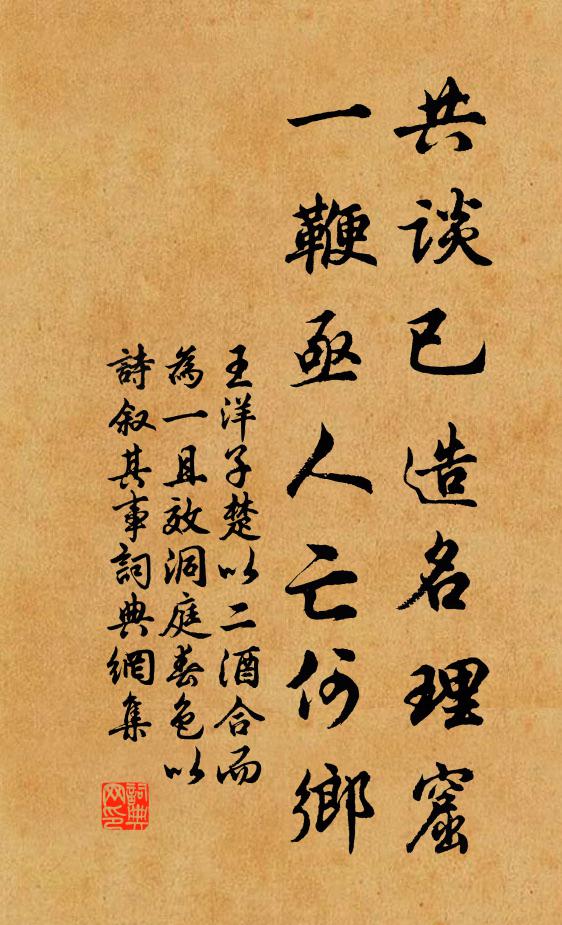 共談已造名理窟
一鞭亟人亡何鄉
王洋子楚以二酒合而
為一且效洞庭春色以
詩叙其事詞典網集
詞典网印